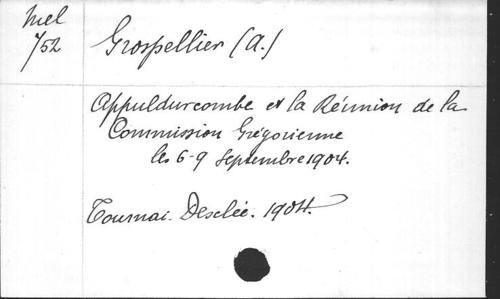 Mel
752
Grospellier (A.)
Appuldurcombe et la Réunion de la
Commission Grégorienne
les 6-9 Septembre 1904.
Tournai. Desclée. 1904.